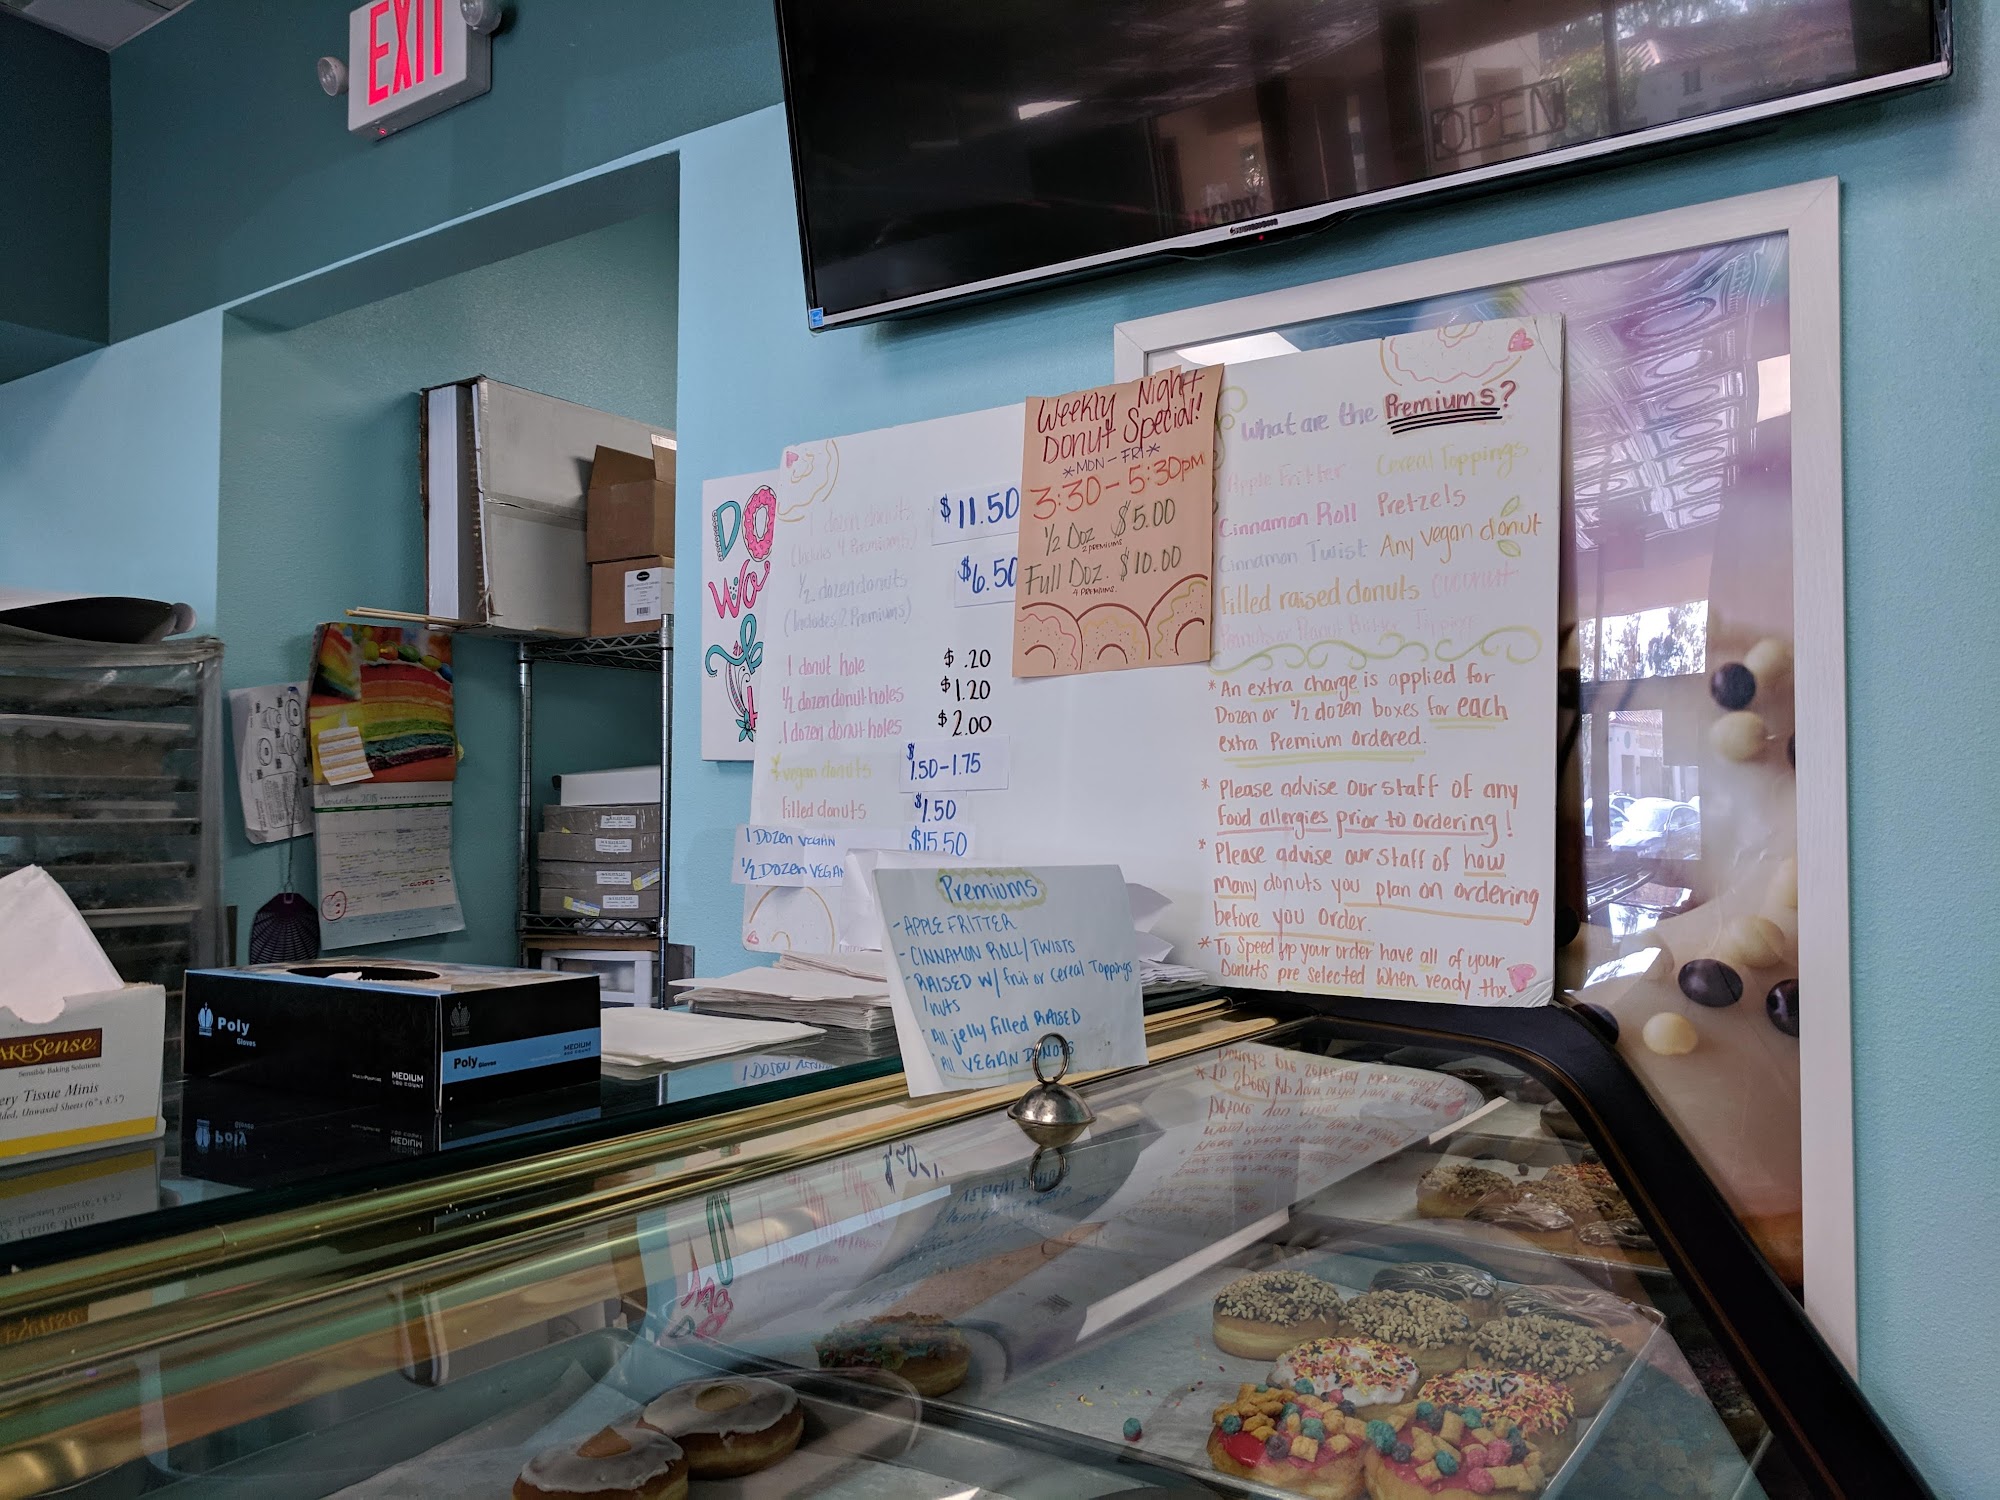 EXIT
OPEN
DO
Weekly Night
Donut Special!
*MON-FRI*
3:30-5:30pm
1/2 Doz $5.00
2 PREMIUMS
Full Doz. $10.00
4 PREMIUMS.
1 dozen donuts $11.50
(Includes 4 Premiums)
1/2 dozen donuts $6.50
(Includes 2 Premiums)
1 donut hole $ .20
1/2 dozen donut holes $1.20
1 dozen donut holes $2.00
vegan donuts $1.50-1.75
filled donuts $1.50
1 DOZEN VEGAN $15.50
1/2 DOZEN VEGAN
What are the Premiums?
Apple Fritter Cereal Toppings
Cinnamon Roll Pretzels
Cinnamon Twist Any vegan donut
Filled raised donuts Coconut
Peanut Butter Topping
* An extra charge is applied for
Dozen or 1/2 dozen boxes for each
extra Premium ordered.
* Please advise our staff of any
food allergies prior to ordering!
* Please advise our staff of how
many donuts you plan on ordering
before you order.
* To speed up your order have all of your
Donuts pre selected when ready. thx.
Premiums
- APPLE FRITTER
- CINNAMON ROLL/TWISTS
- RAISED W/ fruit or Cereal Toppings
/nuts
- All jelly filled RAISED
- All VEGAN DONUTS
Poly
Gloves
MEDIUM
Poly Gloves
MEDIUM
BAKESense
Sensible Baking Solutions
Tissue Minis
Unwaxed Sheets
CLOSED